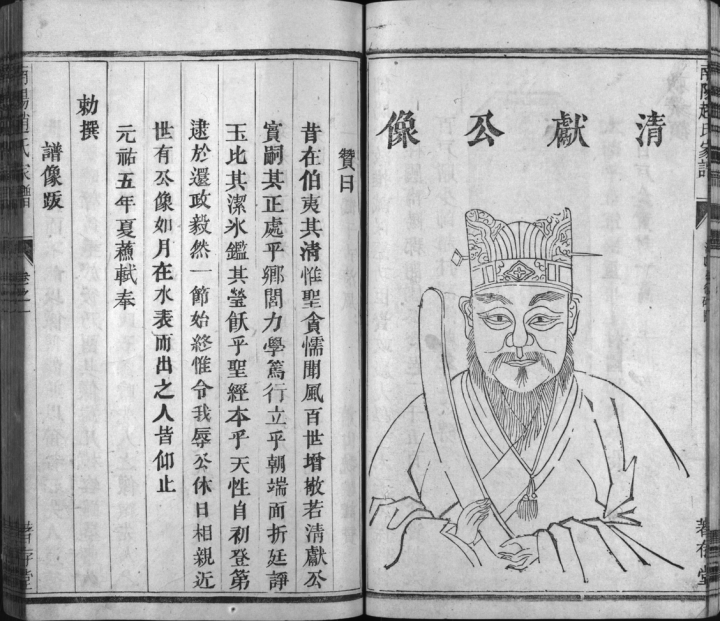 南陽趙氏家譜
清獻公像
著存堂
贊曰
昔在伯夷其清惟聖貪懦聞風百世增敬若清獻公
實嗣其正處乎鄉閭力學篤行立乎朝端面折廷諍
玉比其潔氷鑑其瑩飫乎聖經本乎天性自初登第
逮於還政毅然一節始終惟令我辱公休日相親近
世有公像如月在水表而出之人皆仰止
元祐五年夏蘇軾奉
勅撰
譜像䟦
南陽趙氏家譜
卷之一
著存堂